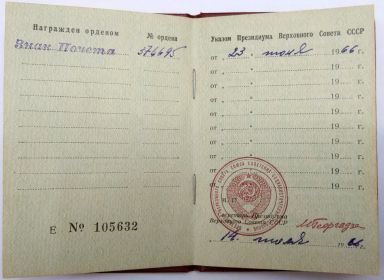 Награжден орденом № ордена
Знак Почета 376695
Е № 105632
Указом Президиума Верховного Совета СССР
от 23 июня 1966 г.
от " 19 г.
от " 19 г.
от " 19 г.
от " 19 г.
от " 19 г.
от " 19 г.
от " 19 г.
от 19 г.
М.П.
Секретарь Президиума
Верховного Совета СССР
14 июля 1966 г.